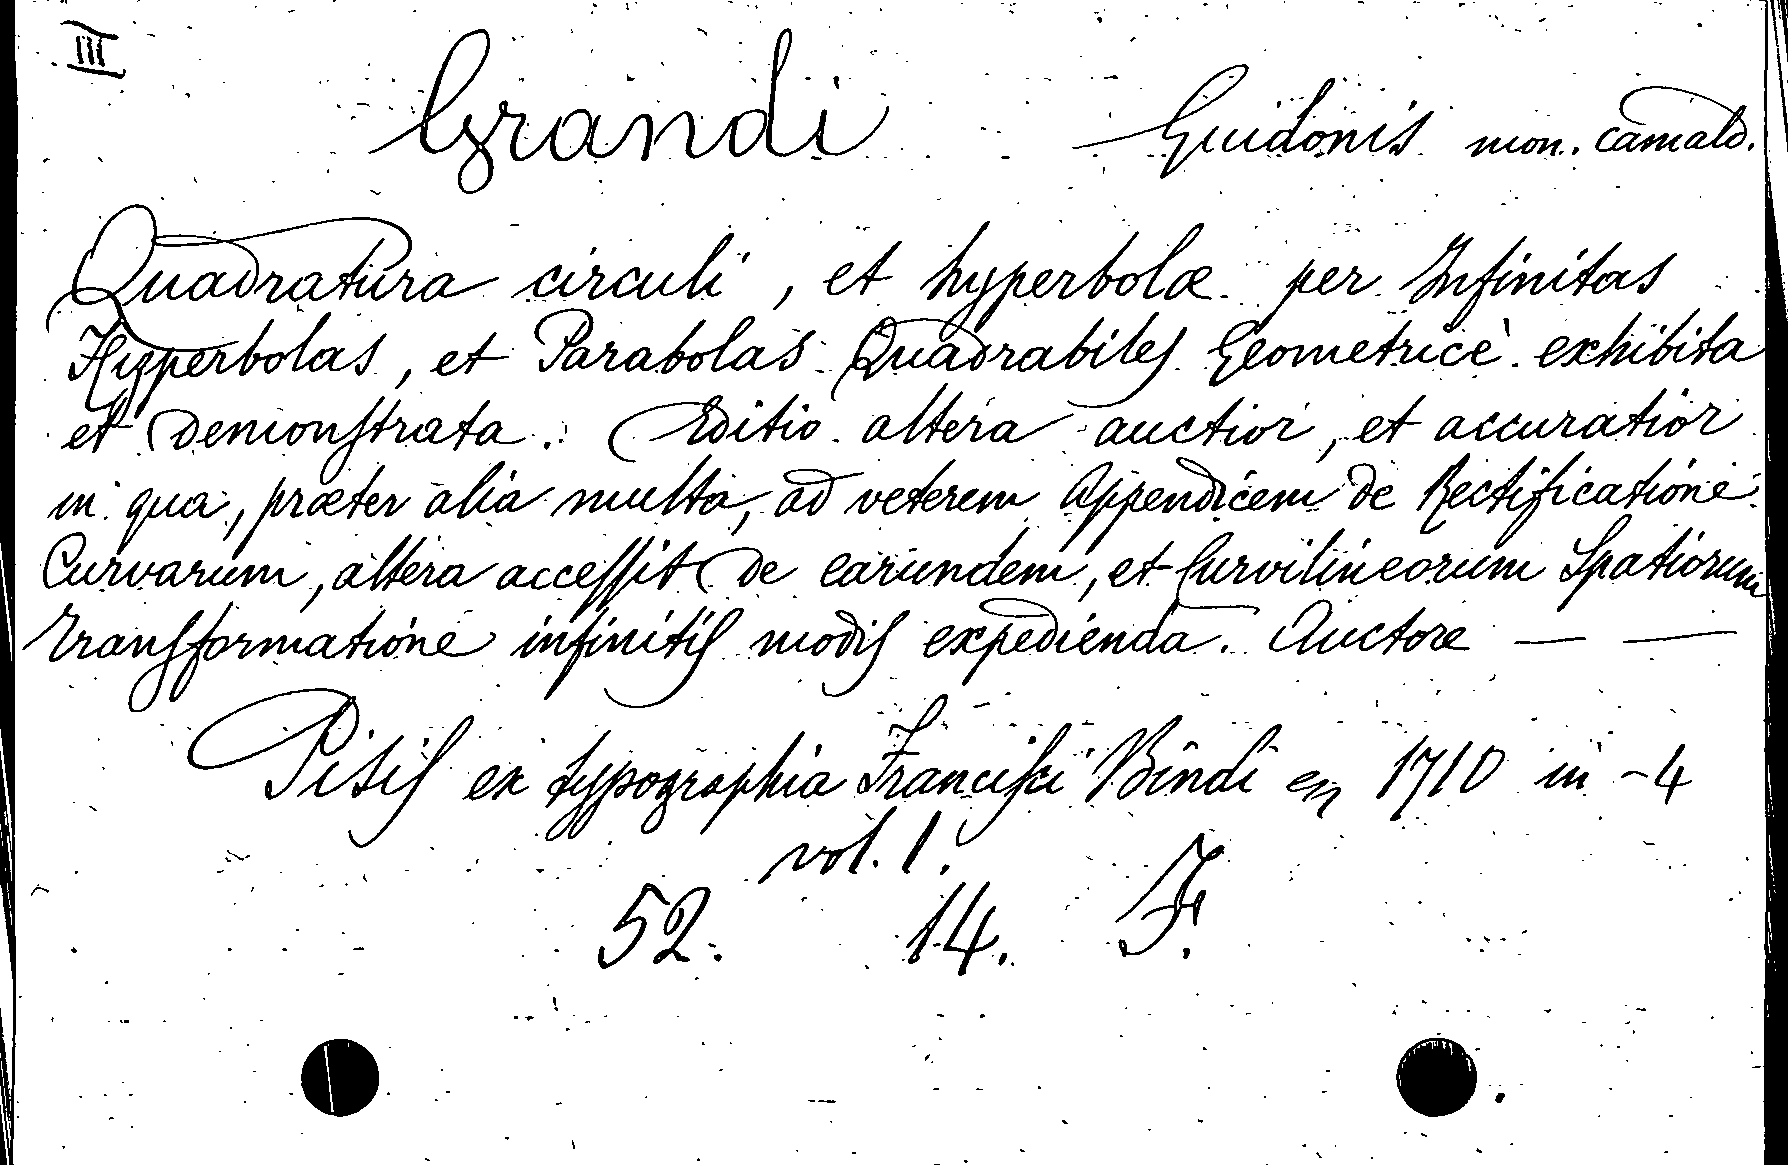 III
Grandi Guidonis mon. camald.
Quadratura circuli, et hyperbolæ per Infinitas
Hyperbolas, et Parabolas Quadrabiles Geometricè exhibita
et demonstrata. Editio altera auctior, et accuratior
in qua, præter alia multa, ad veterem Appendicem de Rectificatione
Curvarum, altera accessit de earundem, et Curvilineorum Spatiorum
transformatione infinitis modis expedienda. Auctore — —
Pisis ex typographia Francisci Bindi en 1710 in -4
vol. 1.
52. 14. F.